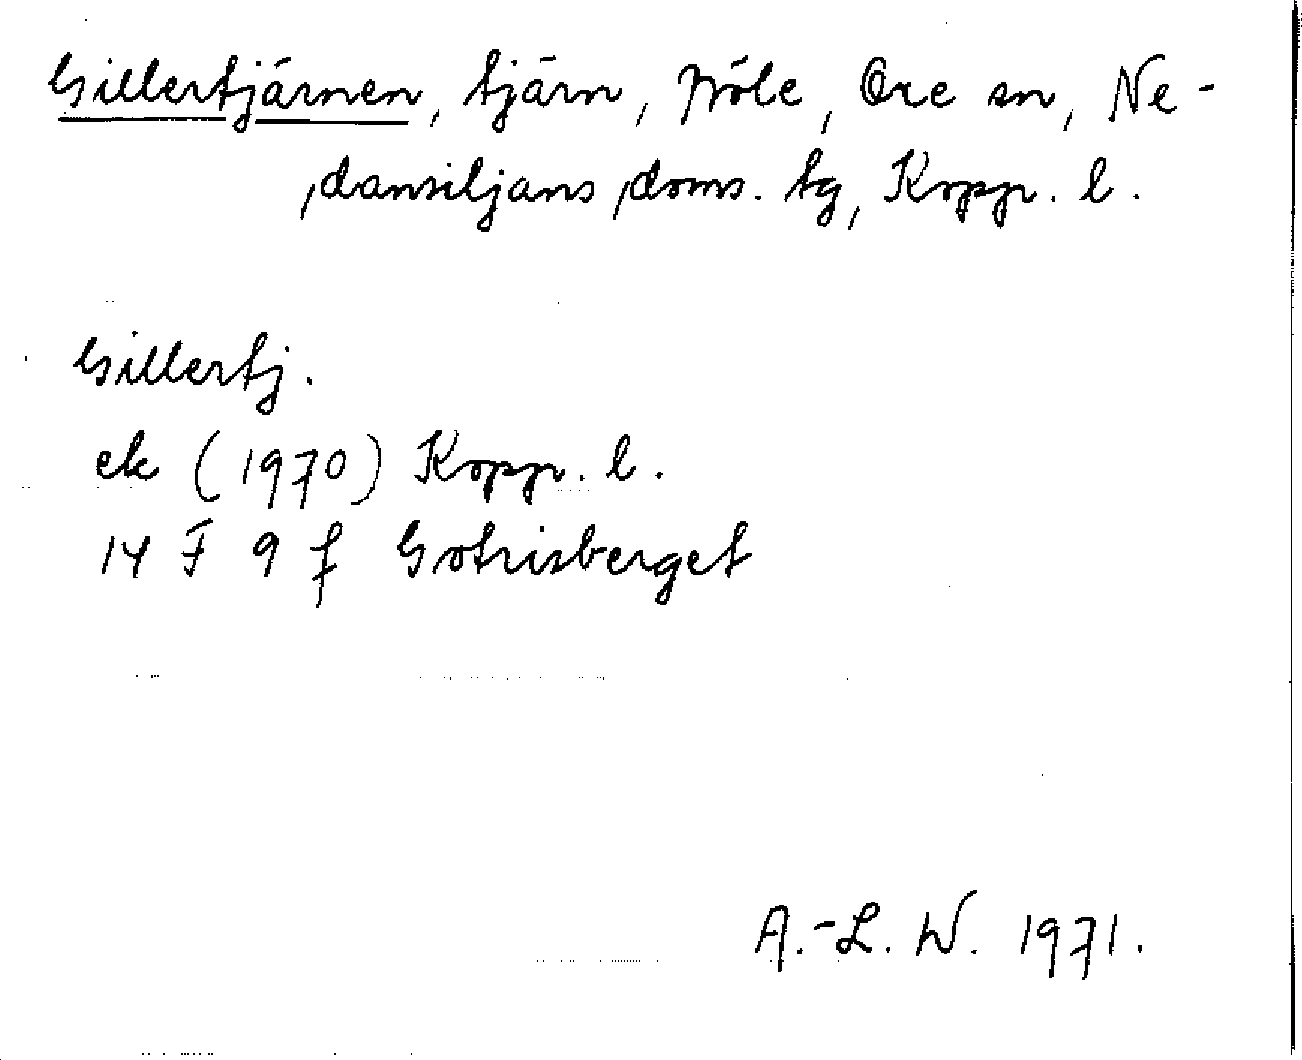 Gillertjärnen, tjärn, Pröle, Ore sn, Ne-
dansiljans doms. tg, Kopp. l.
Gillertj.
ek (1970) Kopp. l.
14 F 9 f Gotrisberget
A.-L. W. 1971.